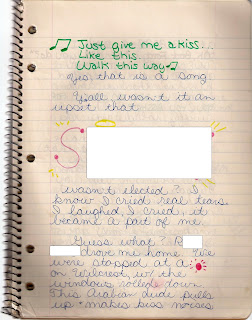 ♫ Just give me a kiss...
Like this
Walk this way ♫
Yes that is a song.
Y'all wasn't it an
upset that
S
wasn't elected? I
know I cried real tears.
I laughed, I cried, it
became a part of me.
Guess what? R
drove me home. We
were stopped at a
on Wilcrest w/ the
windows rolled down.
This Arabian dude pulls
up & makes kiss noises